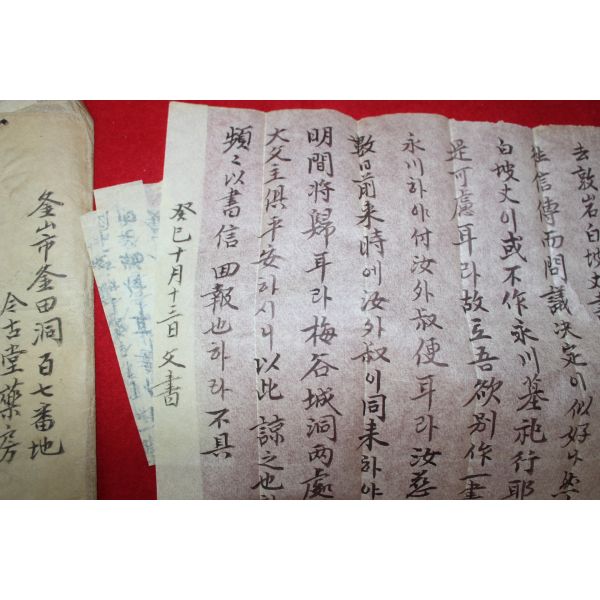 去敦岩白坡丈書
生信傳而問議決定이似好나然
白坡丈이或不作永川墓祀行耶
是可慮耳라故로吾欲別作一書
永川하야付汝外叔便耳라汝慈
數日前来時에汝外叔이同来하야
明間将歸耳라梅谷城洞両處
大父主俱平安하시니以此諒之也하
頻々以書信回報也하라不具
癸巳十月十三日父書
釜山市釜田洞百七番地
今古堂藥房